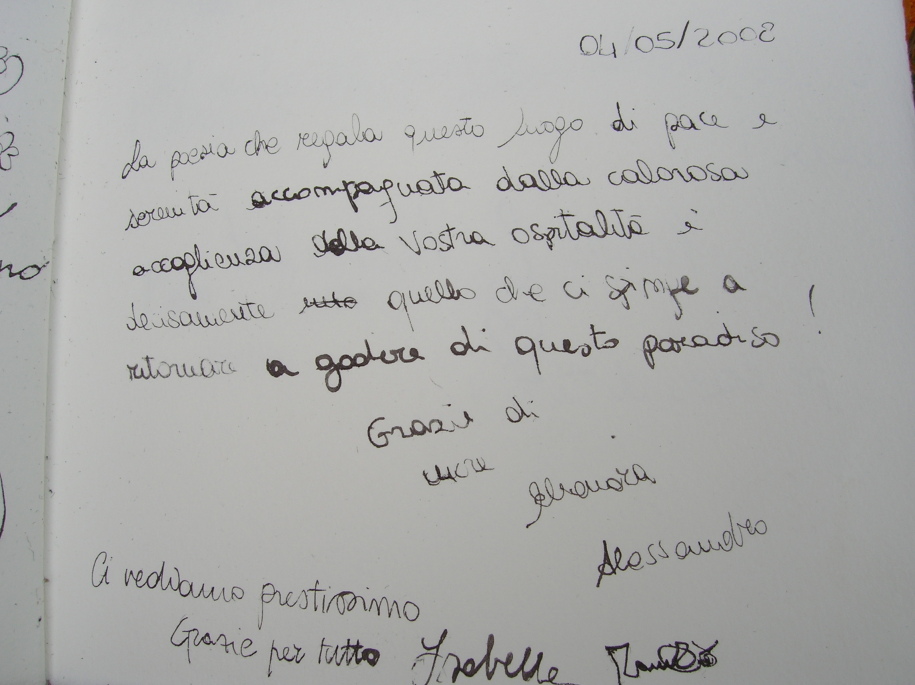 04/05/2008
La poesia che regala questo luogo di pace e
serenità accompagnata dalla calorosa
accoglienza della vostra ospitalità è
decisamente tutto quello che ci spinge a
ritornare a godere di questo paradiso!
Grazie di
cuore
Eleonora
Alessandro
Ci vediamo prestissimo
Grazie per tutto Isabella